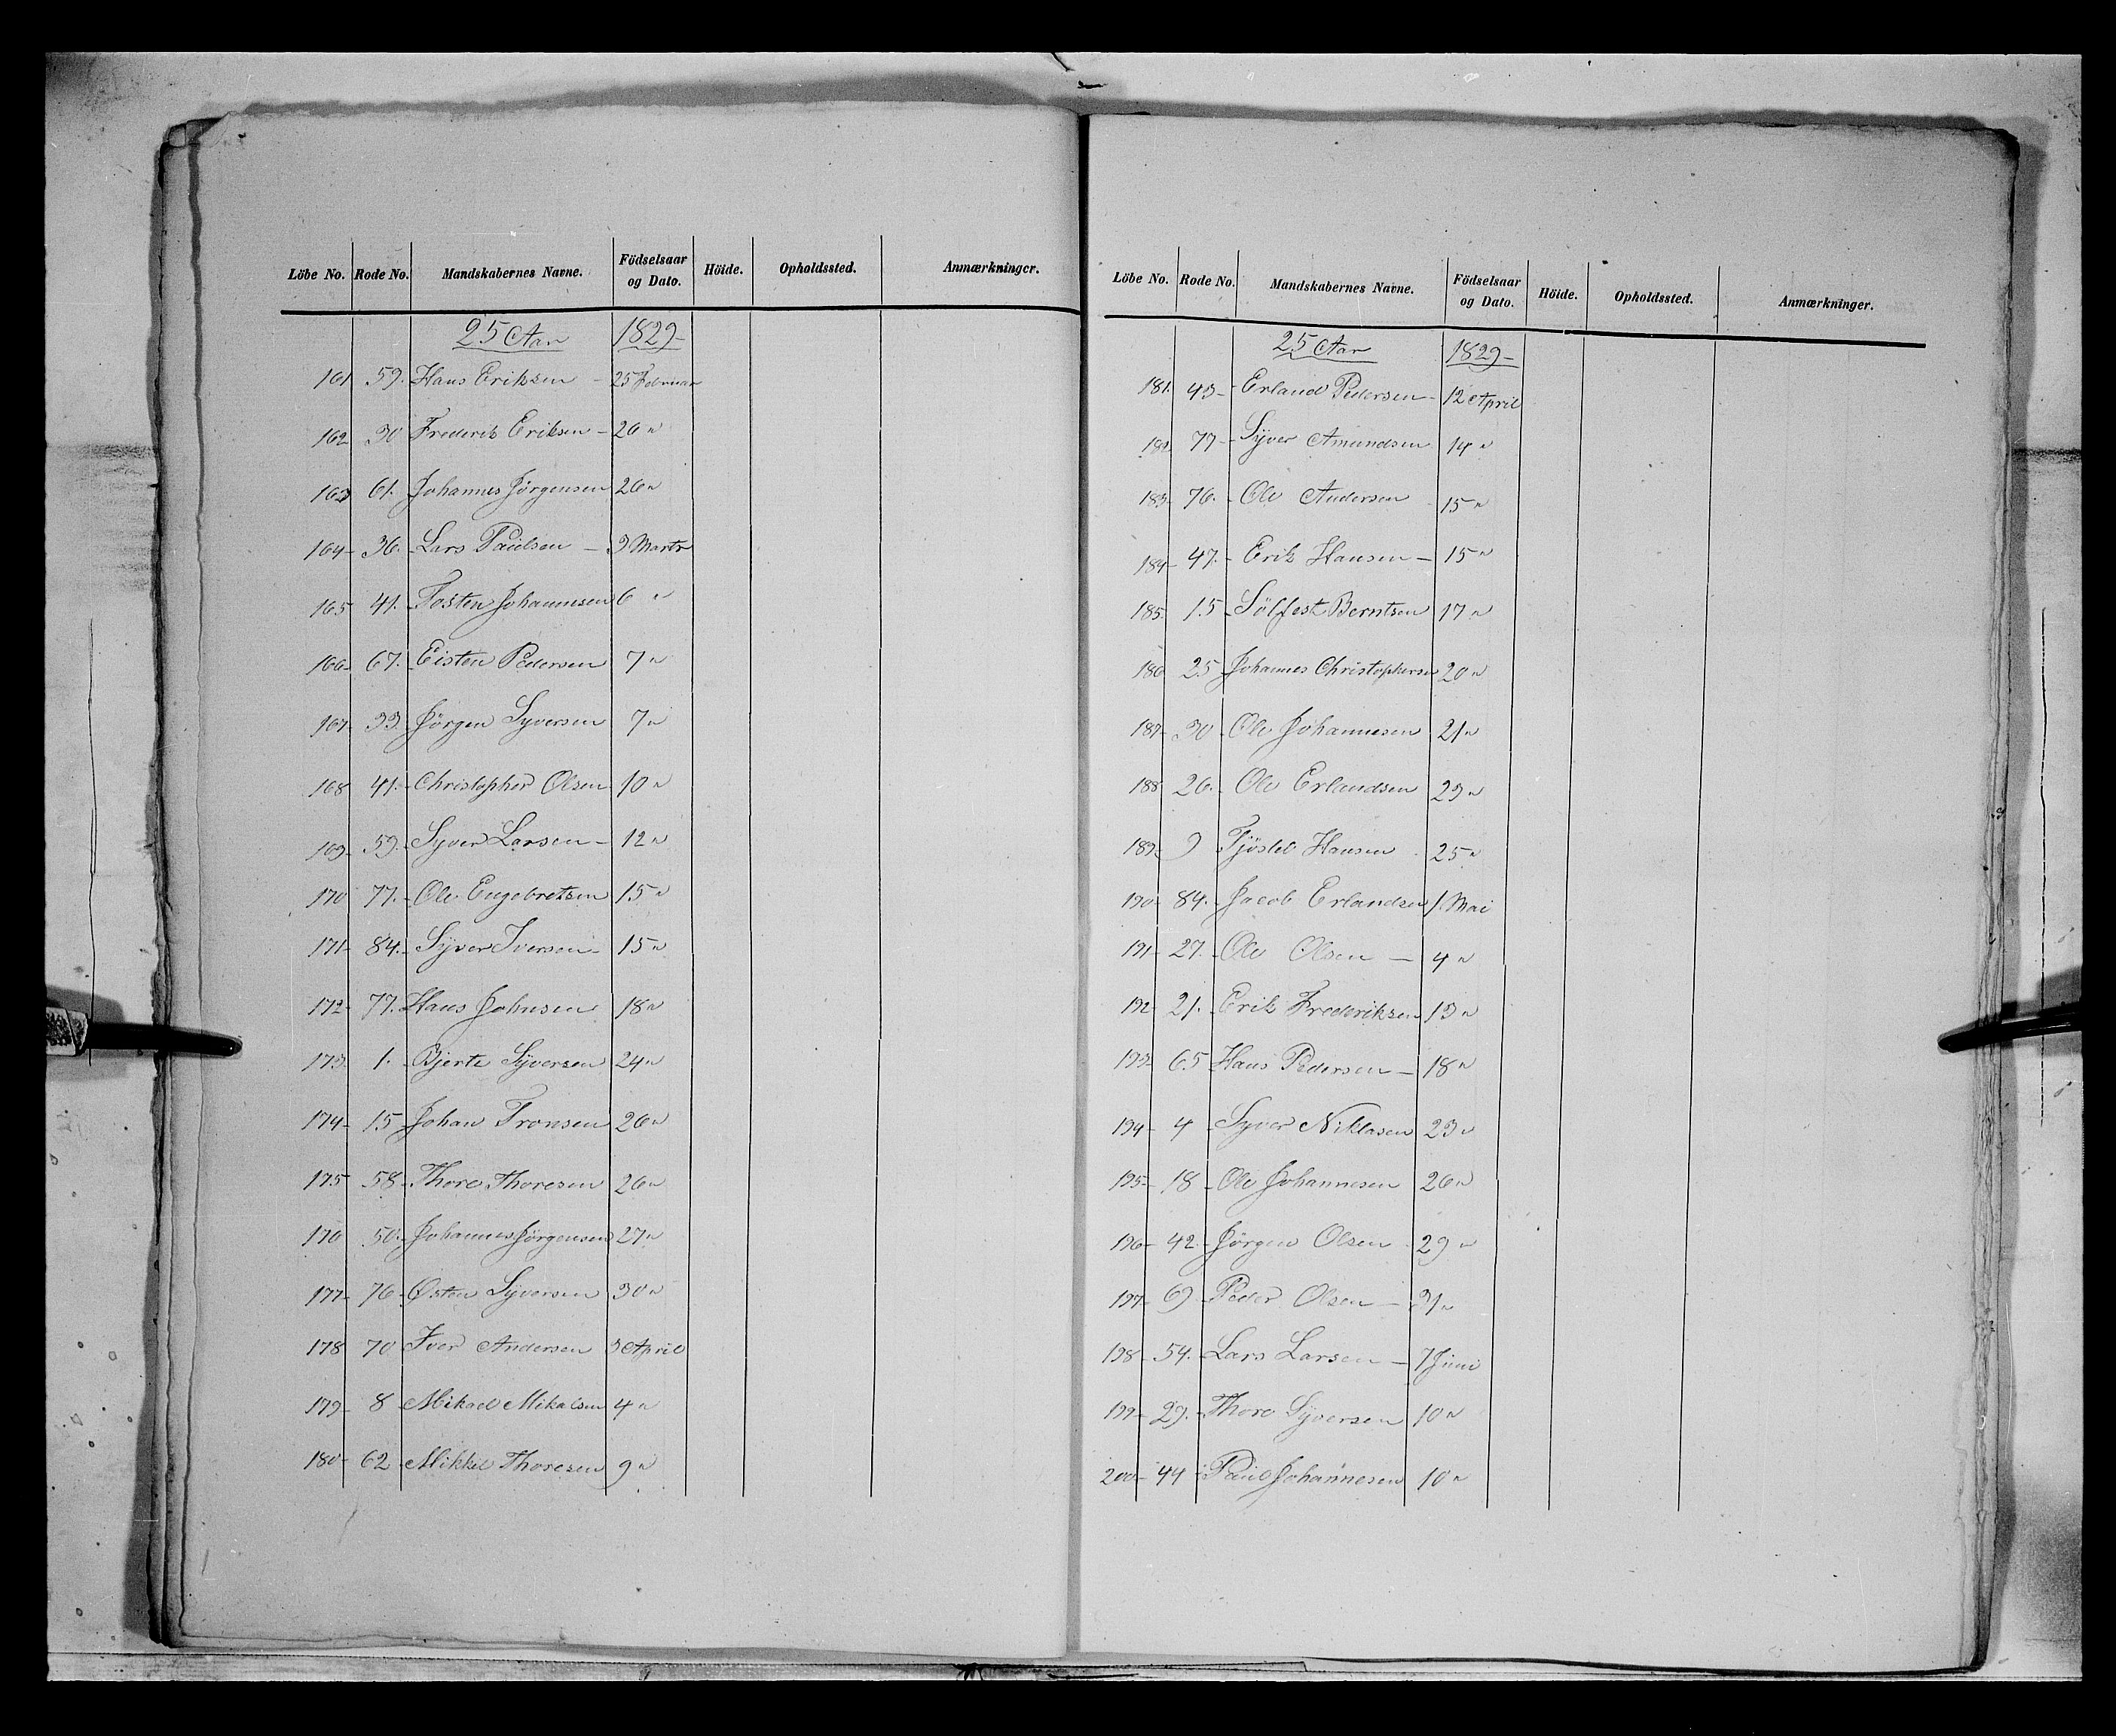 Löbe No. Rode No. Mandskabernes Navne. Födselsaar og Dato. Höide. Opholdssted. Anmærkninger.
25 Aar 1829-
161 59. Hans Eriksen - 25 Februar
162 30 Frederik Eriksen - 26 "
163 61. Johannes Jörgensen 26 "
164- 36. Lars Paulsen - 3 Marts
165 41. Tosten Johannesen 6 "
166- 67. Eisten Pedersen 7 "
167- 33. Jörgen Syversen 7 "
168 41. Christopher Olsen 10 "
169- 59. Syver Larsen - 12 "
170 77. Ole Engebretsen 15 "
171- 84. Syver Iversen - 15 "
172- 77. Hans Johnsen 18 "
173 1. Bjerte Syversen 24 "
174- 15 Johan Tronsen 26 "
175 58- Thore Thoresen 26 "
176 50. Johannes Jörgensen 27 "
177- 76- Østen Syversen 30 "
178 70 Iver Andersen 3 April
179- 8 Mikael Mikalsen 4 "
180- 62 Mikkel Thoresen 9 "
Löbe No. Rode No. Mandskabernes Navne. Födselsaar og Dato. Höide. Opholdssted. Anmærkninger.
25 Aar 1829-
181. 43- Erland Pedersen - 12 April
182 77- Syver Amundsen 14 "
183- 76. Ole Andersen 15 "
184- 47. Erik Hansen - 15 "
185. 15 Sölfest Berntsen 17 "
186 25 Johannes Christophersen 20 "
187- 30 Ole Johannesen 21 "
188 26. Ole Erlandsen 23 "
189- 9 Tjöstel Hansen 25 "
190- 84. Jacob Erlandsen 1. Mai
191- 27. Ole Olsen - 4 "
192- 21. Erik Frederiksen 13 "
193- 65 Hans Pedersen - 18 "
194- 4 Syver Niklasen 23 "
195- 18 Ole Johannesen 26 "
196- 42. Jörgen Olsen 29 "
197- 69 Peder Olsen - 31 "
198- 54. Lars Larsen - 7 Juni
199- 29. Thore Syversen 10 "
200- 44 Paul Johannesen 10 "